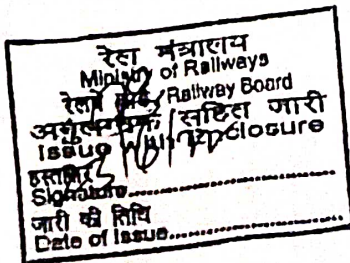 रेल मंत्रालय
Ministry of Railways
रेलवे बोर्ड/Railway Board
सहित जारी
Issue With Enclosure
हस्ताक्षर
Signature....................
जारी की तिथि
Date of Issue....................